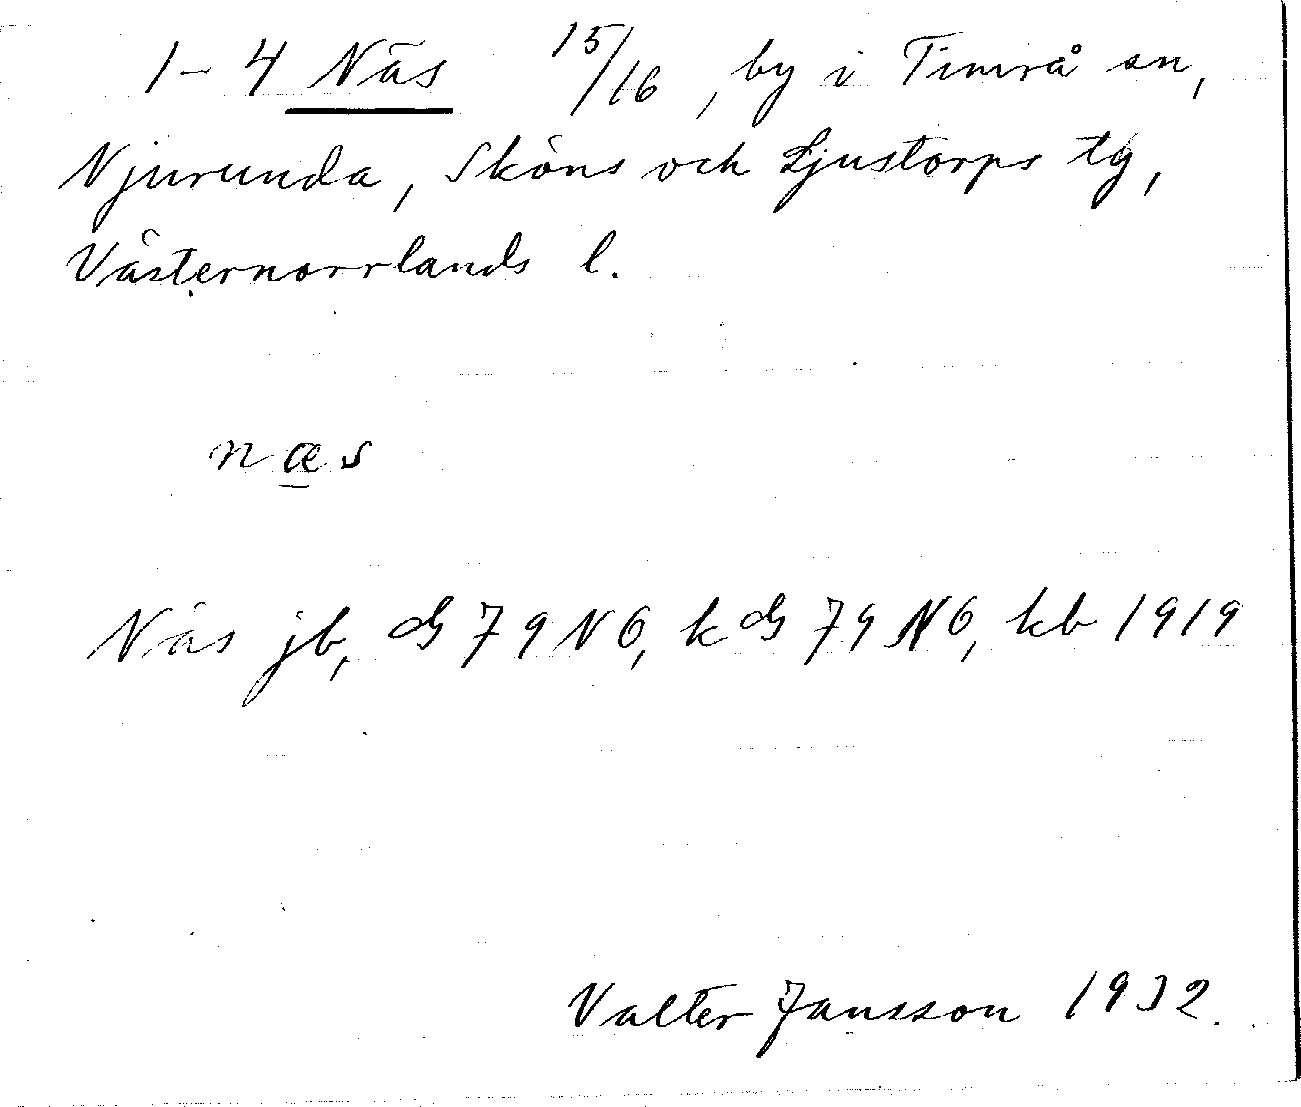 1-4 Näs 15/16, by i Timrå sn,
Njurunda, Sköns och Ljustorps tg,
Västernorrlands l.
næs
Näs jb, ds 79 NO, kds 79 NO, kb 1919
Valter Jansson 1932.